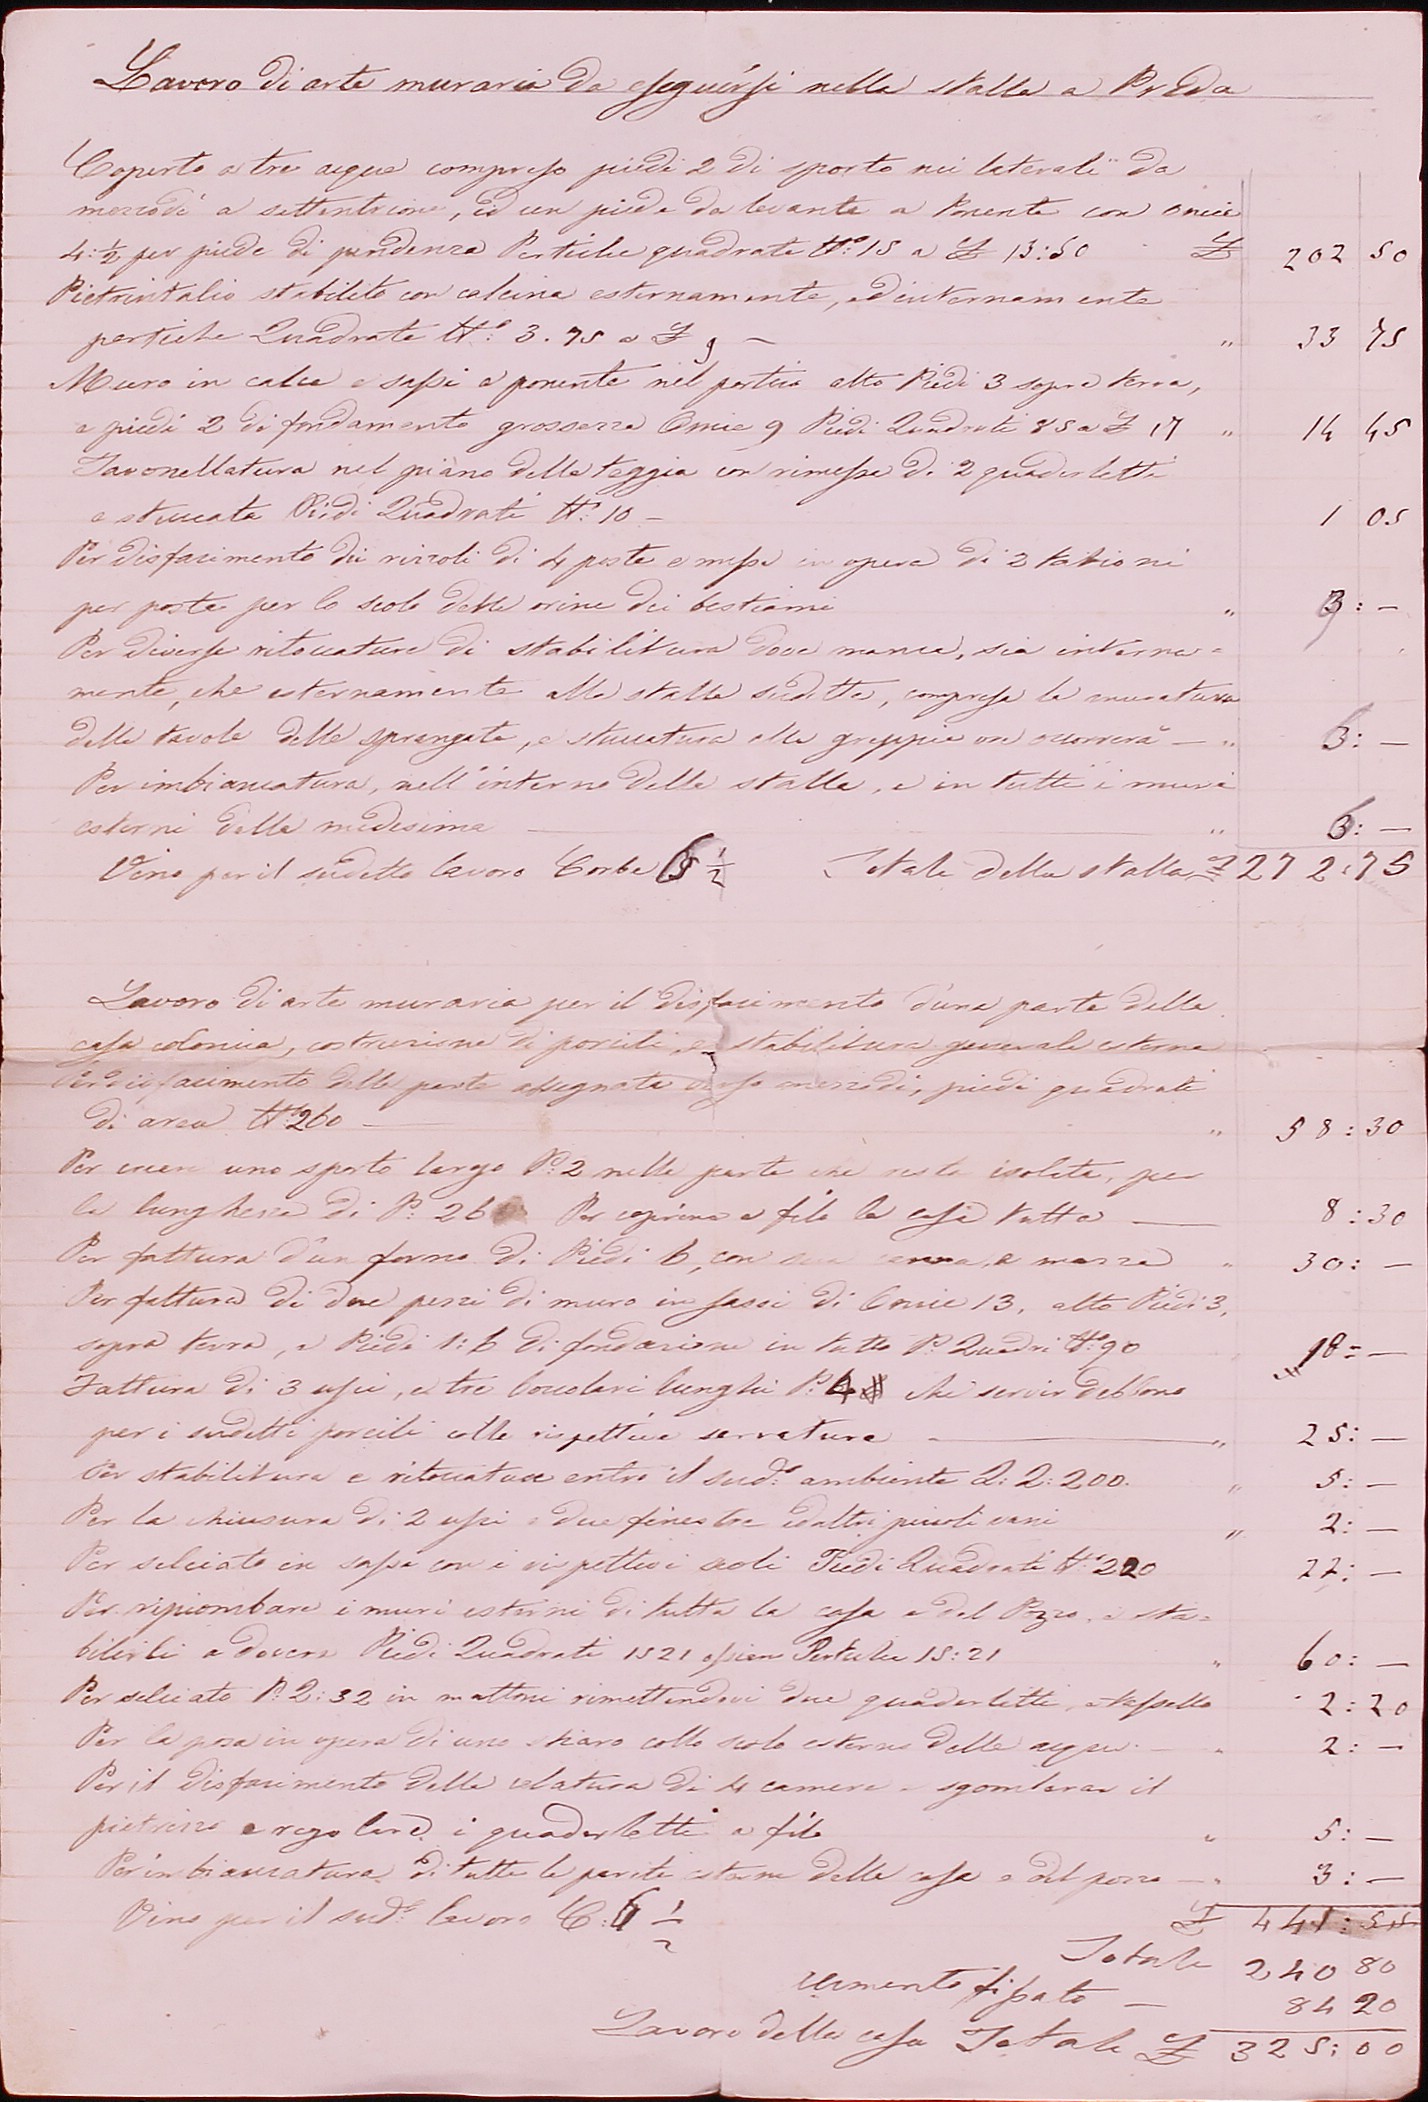 Lavoro di arte muraria da eseguirsi nella stalla a Preda
Coperto a tre acque compreso piedi 2 di sporto nei laterali da
mezzodì a settentrione, ed un piede da levante a Ponente con Oncie
4:½ per piede di pendenza Pertiche quadrate N.° 15 a £ 13:50 £ 202 50
Pietrintalio stabilito con calcina esternamente, ed internamente
pertiche Quadrate N.° 3.75 a £ 9 — „ 33 75
Muro in calce e sassi a ponente nel portico alto Piedi 3 sopra terra,
e piedi 2 di fondamento grossezza Oncie 9 Piedi Quadrati 85 a £ 17 „ 14 45
Tavonellatura nel piano della teggia con rimessa di 2 quaderletti
e stuccata Piedi Quadrati N.° 10 — 1 05
Per disfacimento dei rizzoli di 4 poste e messa in opera di 2
per posta per lo scolo delle orine dei bestiami „ 3: —
Per diverse ritoccature di stabilitura dove manca, sia interna=
mente, che esternamente alla stalla sudetta, compresa la muratura
delle tavole delle sprangate, e stuccatura alla greppia ove occorrerà — „ : —
Per imbiancatura, nell'interno della stalla, e in tutti i muri
esterni della medesima — „ : —
Vino per il sudetto lavoro Corbe ½ Totale della stalla £ 272:75
Lavoro di arte muraria per il disfacimento d'una parte della
casa colonica, costruzione di porcili, e stabilitura generale esterna
Per disfacimento della parte assegnata verso mezzodì, piedi quadrati
di area N.° 260 — „ 58:30
Per creare uno sporto largo P. 2 nella parte che resta isolata, per
la lunghezza di P. 26 Per coprirne a filo la casa tutta — 8:30
Per fattura d'un forno di Piedi 6, con sua e mezza „ 30: —
Per fattura di due pezzi di muro in sassi di Oncie 13, alto Piedi 3,
sopra terra, e Piedi 1:6 di fondazione in tutto P. Quadri N.° 90 18= —
Fattura di 3 usci, e tre lunghi P. 4 che servir debbono
per i sudetti porcili colle rispettive serrature — „ 25: —
Per stabilitura e ritoccature entro il sud.° ambiente Q: 2: 200. „ 5: —
Per la chiusura di 2 usci e due finestre ed altri piccoli vani „ 2: —
Per selciato in sassi con i rispettivi scoli Piedi Quadrati N.° 220 22: —
Per ripiombare i muri esterni di tutta la casa e del Pozzo, e sta=
bilirli a dovere Piedi Quadrati 1521 ossiano Pertiche 15:21 „ 60: —
Per selciato P. Q: 32 in mattoni rimettendovi due quaderletti, a tassello 2:20
Per la posa in opera di uno collo scolo esterno delle acque — „ 2: —
Per il disfacimento della volatura di 4 camere e sgomberar il
pietrizzo e regolare i quaderletti a filo „ 5: —
Per imbiancatura di tutte le pareti esterne della casa e del pozzo — „ 3: —
Vino per il sud.° lavoro C: 6 ½ £ 441:55
Totale 240 80
fissato — 84 20
Lavoro della casa Totale £ 325:00